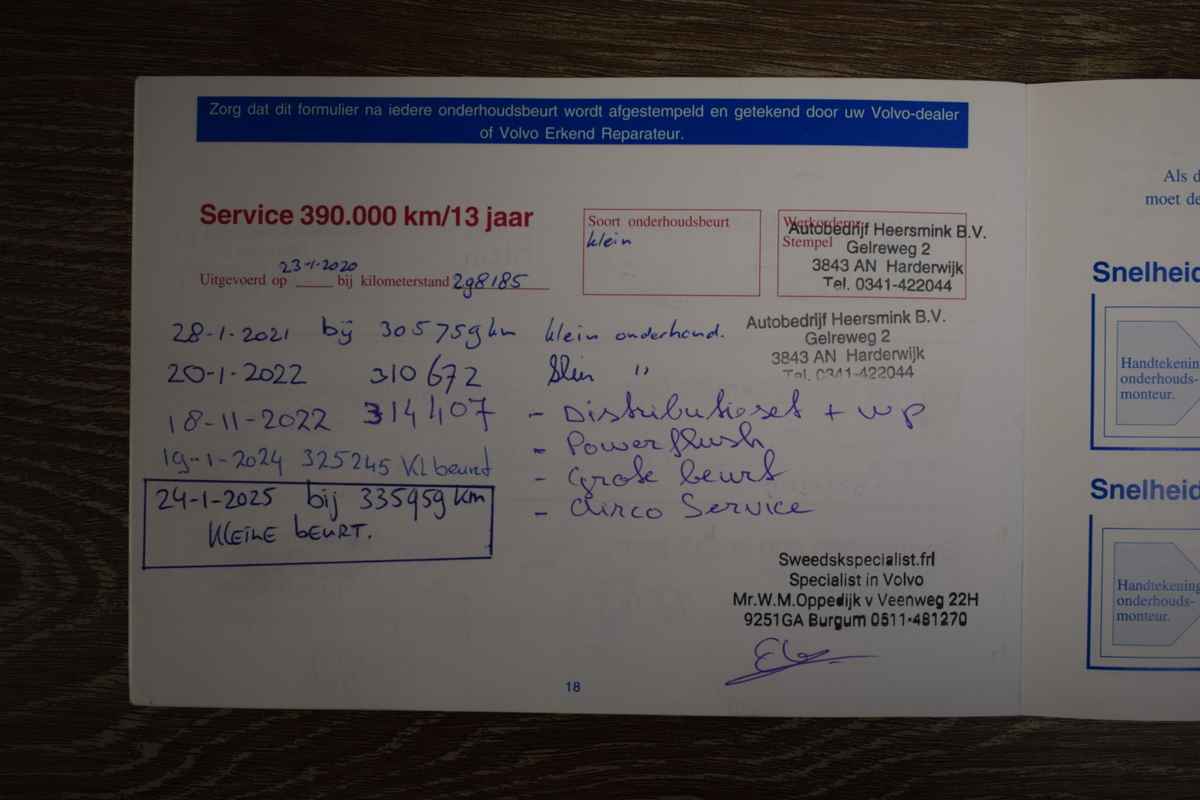 Zorg dat dit formulier na iedere onderhoudsbeurt wordt afgestempeld en getekend door uw Volvo-dealer
of Volvo Erkend Reparateur.
Service 390.000 km/13 jaar
Uitgevoerd op 23-1-2020 bij kilometerstand 298185
Soort onderhoudsbeurt
klein
Werkordernr.
Stempel
Autobedrijf Heersmink B.V.
Gelreweg 2
3843 AN Harderwijk
Tel. 0341-422044
28-1-2021 bij 305759km klein onderhoud.
Autobedrijf Heersmink B.V.
Gelreweg 2
3843 AN Harderwijk
Tel. 0341-422044
20-1-2022 310672 klein "
18-11-2022 314407 - Distributieset + wp
- Powerflush
19-1-2024 325245 Kl beurt
- Grote beurt
24-1-2025 bij 335959 km
- Airco Service
KLEINE BEURT.
Sweedskspecialist.frl
Specialist in Volvo
Mr.W.M.Oppedijk v Veenweg 22H
9251GA Burgum 0511-481270
18
Als d
moet de
Snelheid
Handtekening
onderhouds-
monteur.
Snelheid
Handtekening
onderhouds-
monteur.